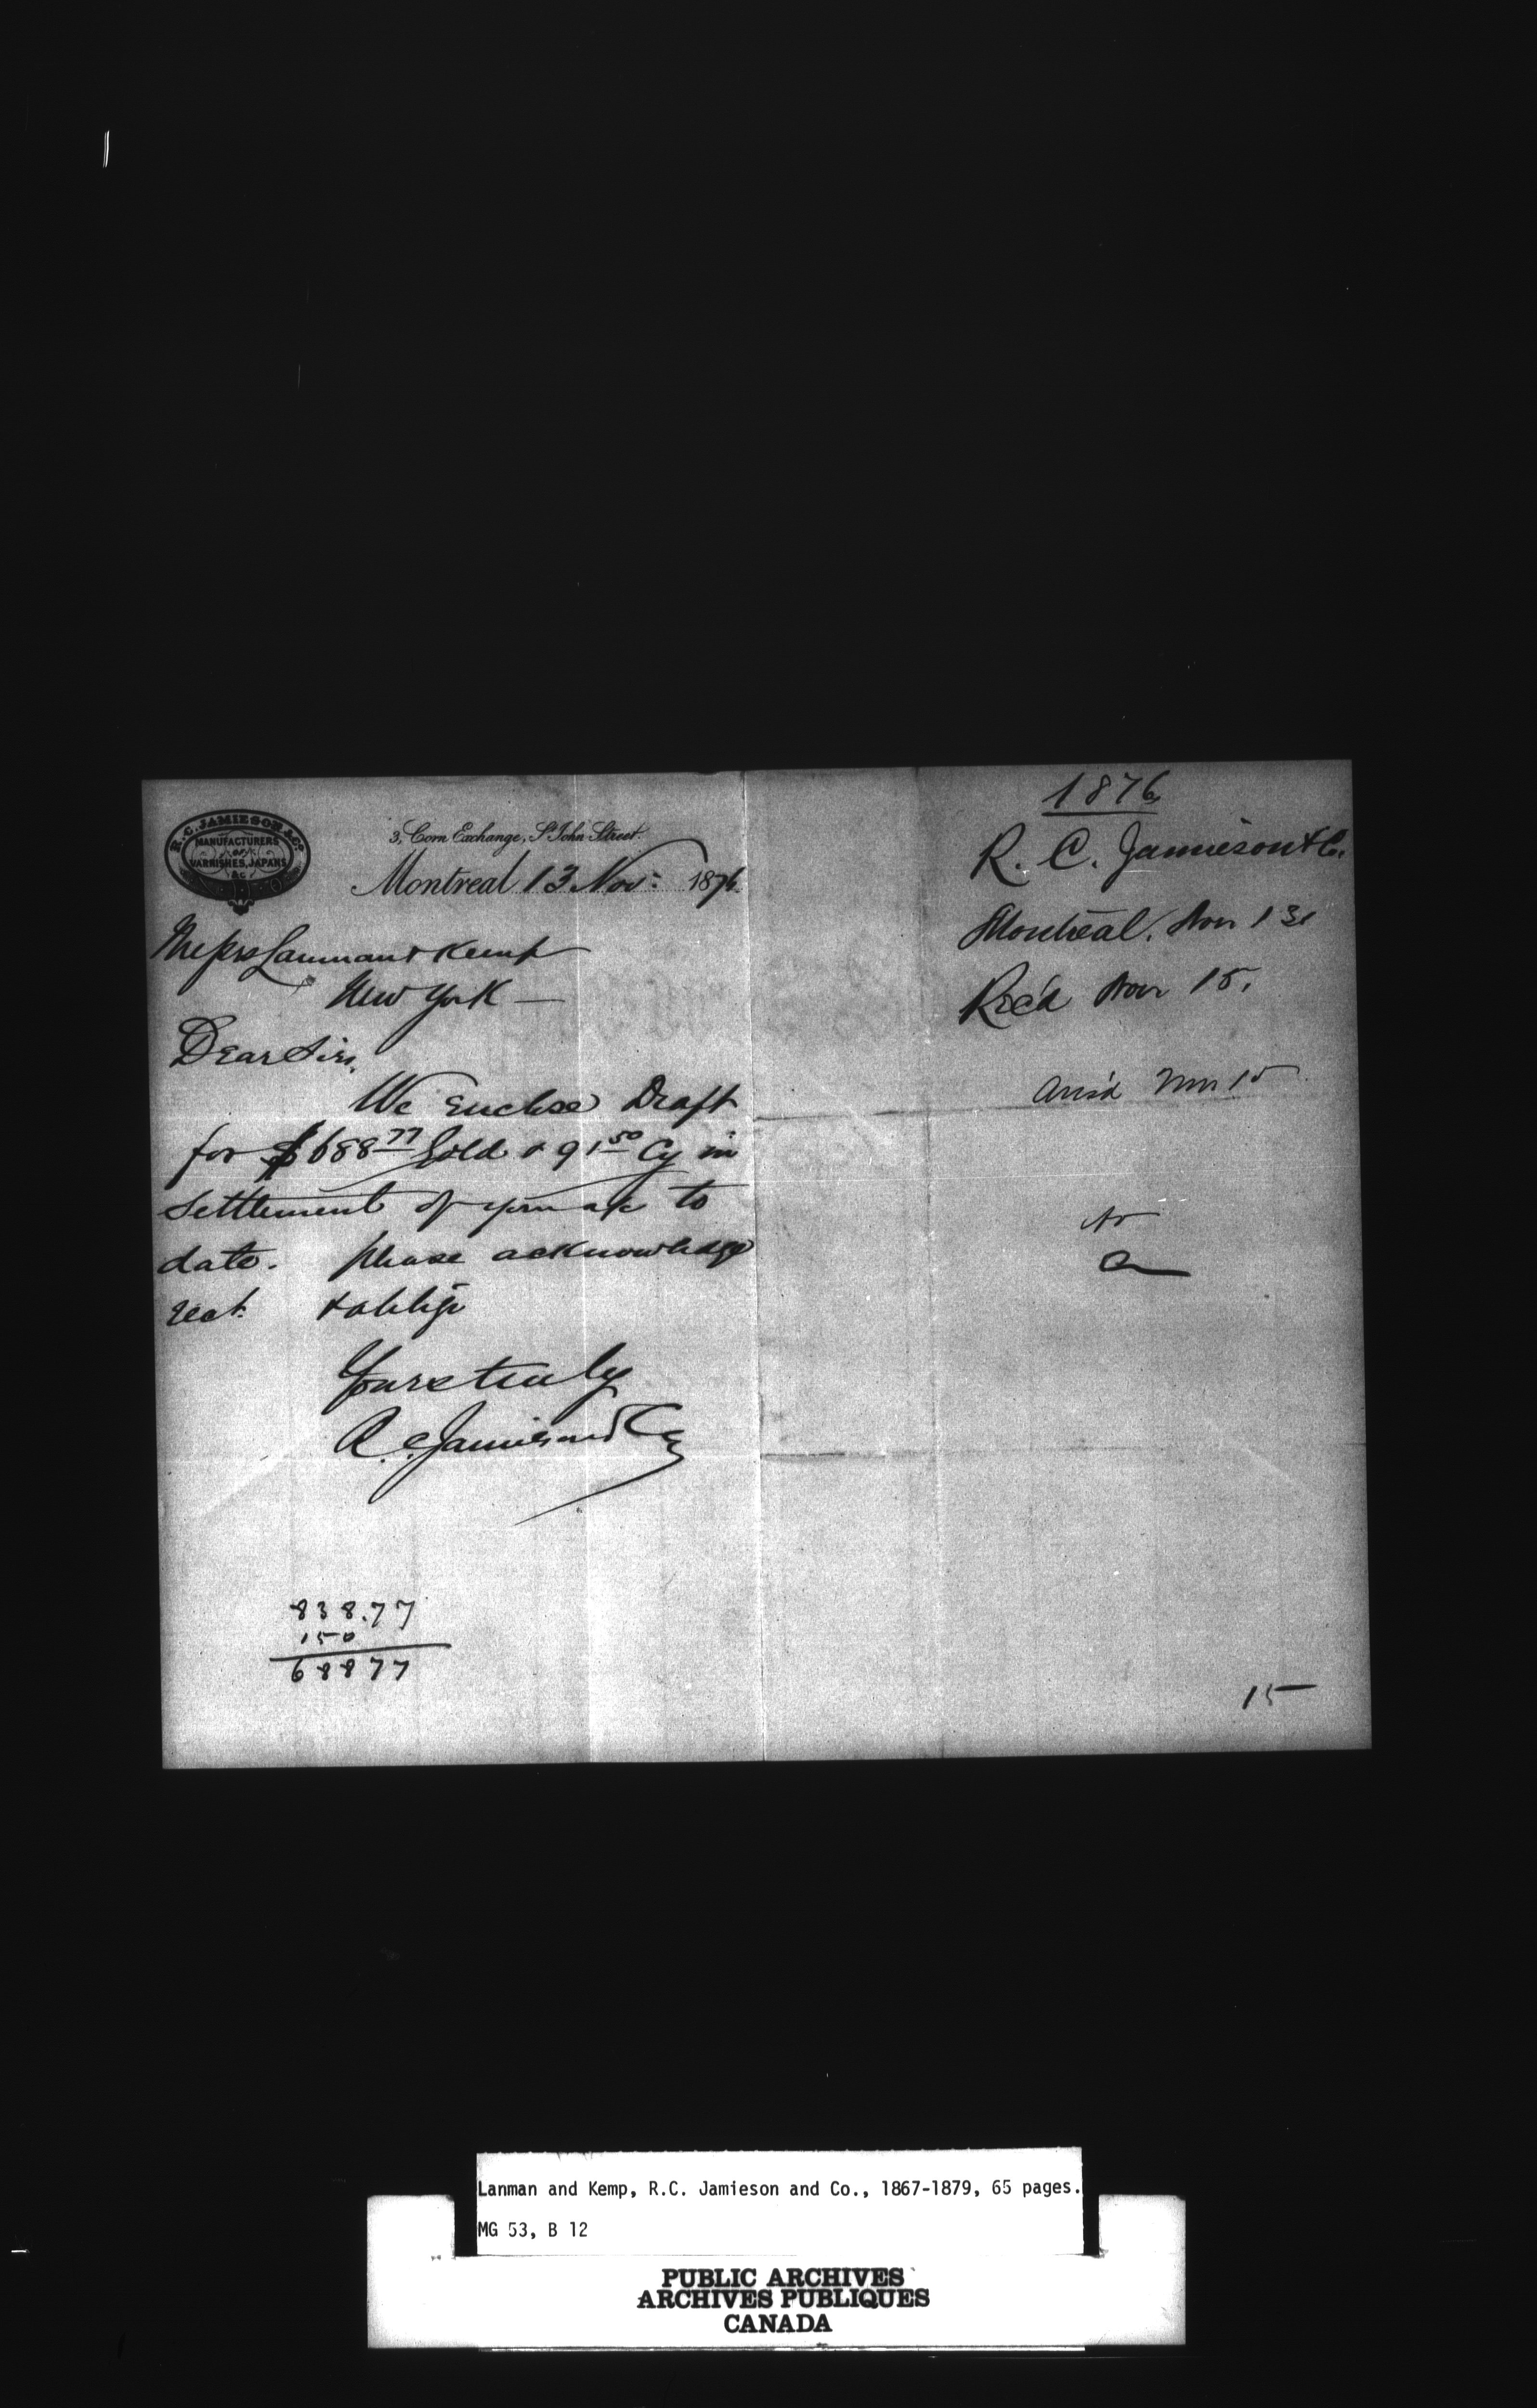 R. C. JAMIESON & Co.
MANUFACTURERS
OF
VARNISHES, JAPANS
&c
3, Corn Exchange, St John Street.
Montreal 13 Nov: 1876
Messrs Lanman & Kemp
New York —
Dear Sirs,
We enclose Draft
for $688 77 Gold & 91 50 Cy in
settlement of your a/c to
date. please acknowledge
rect. & oblige
Yours truly
R. C. Jamieson & Co
838.77
150
68877
1876
R. C. Jamieson & Co.
Montreal. Nov 13
Rec'd Nov 15.
Ans'd Nov 15
15
Lanman and Kemp, R.C. Jamieson and Co., 1867-1879, 65 pages.
MG 53, B 12
PUBLIC ARCHIVES
ARCHIVES PUBLIQUES
CANADA